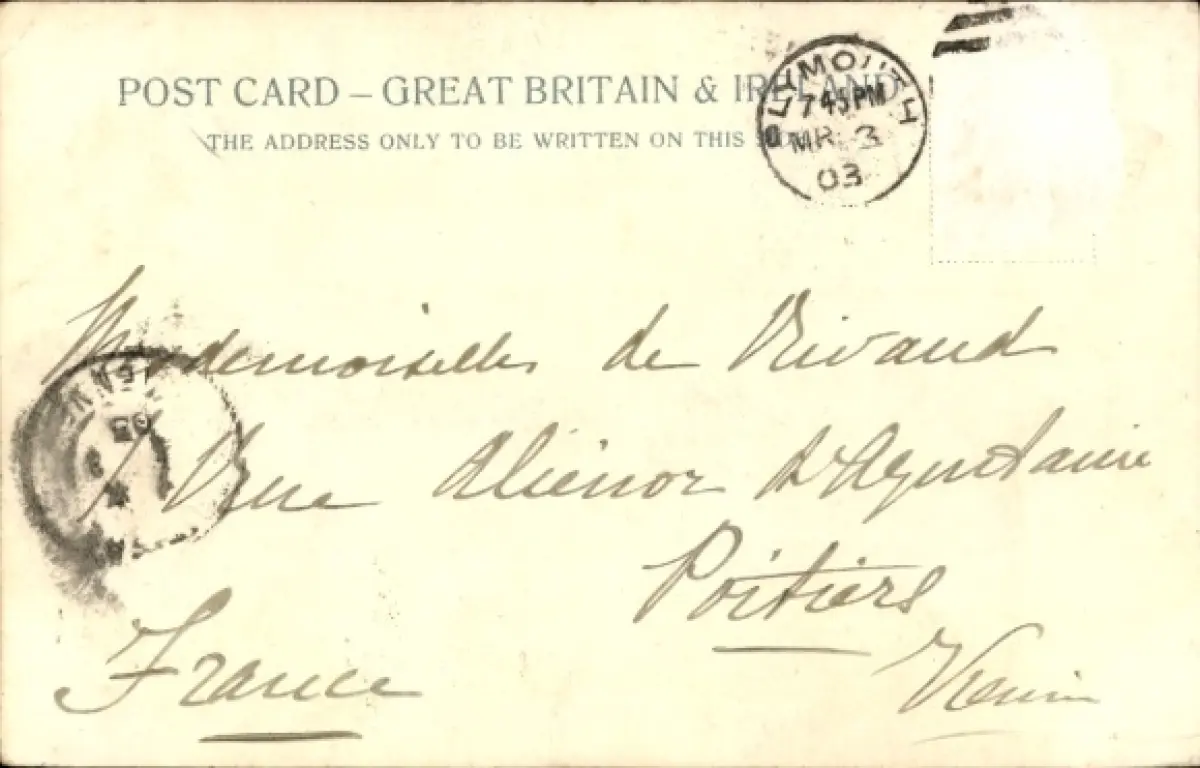 POST CARD – GREAT BRITAIN & IRELAND
THE ADDRESS ONLY TO BE WRITTEN ON THIS SIDE
PLYMOUTH
7 45 PM
MR 3
03
Mademoiselle de Rivaud
Rue Aliénor d'Aquitaine
Poitiers
France